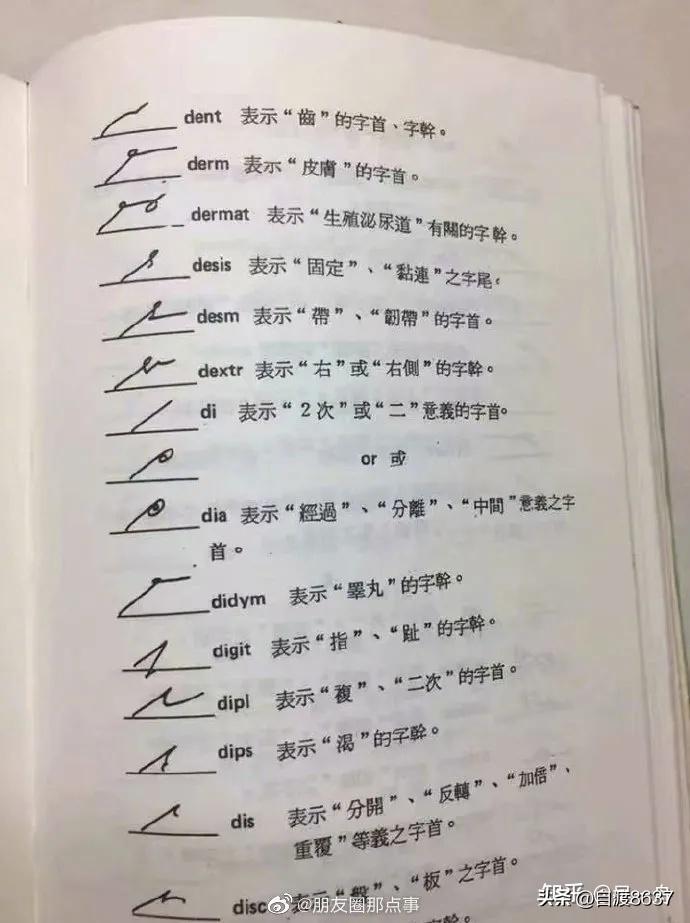 dent 表示“齒”的字首、字幹。
derm 表示“皮膚”的字首。
dermat 表示“生殖泌尿道”有關的字幹。
desis 表示“固定”、“黏連”之字尾。
desm 表示“帶”、“韌帶”的字首。
dextr 表示“右”或“右側”的字幹。
di 表示“2次”或“二”意義的字首。
or 或
dia 表示“經過”、“分離”、“中間”意義之字
首。
didym 表示“睪丸”的字幹。
digit 表示“指”、“趾”的字幹。
dipl 表示“複”、“二次”的字首。
dips 表示“渴”的字幹。
dis 表示“分開”、“反轉”、“加倍”、
重覆”等義之字首。
disc 表示“盤”、“板”之字首。
@朋友圈那点事
知乎
头条@自渡8637